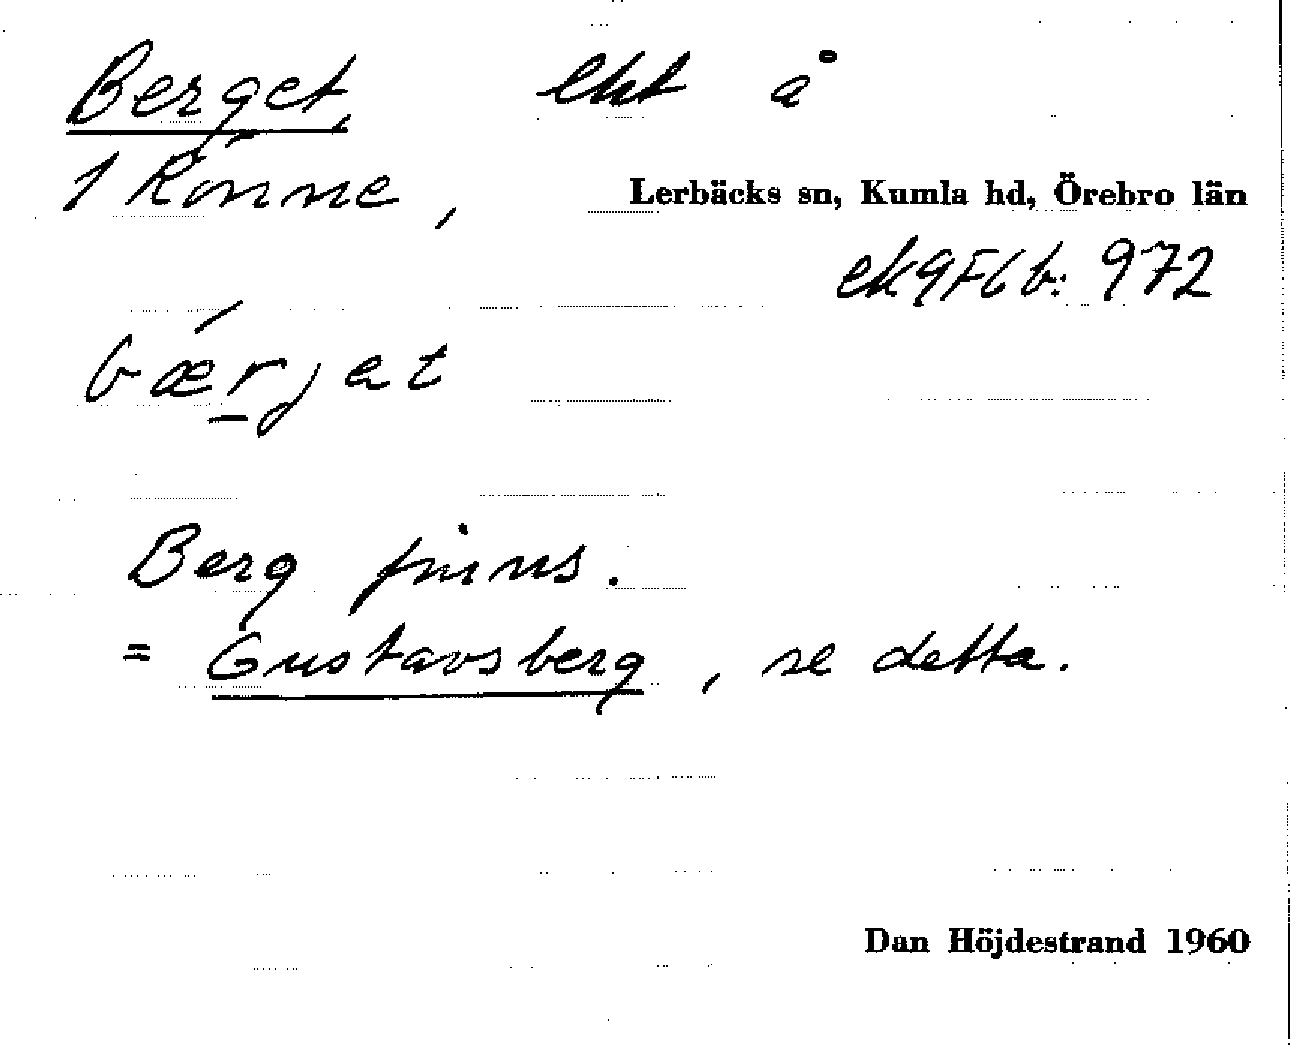 Berget, lht å
1 Rönne, Lerbäcks sn, Kumla hd, Örebro län
ek 9F6b: 972
bærjet
Berg finns.
= Gustavsberg, se detta.
Dan Höjdestrand 1960